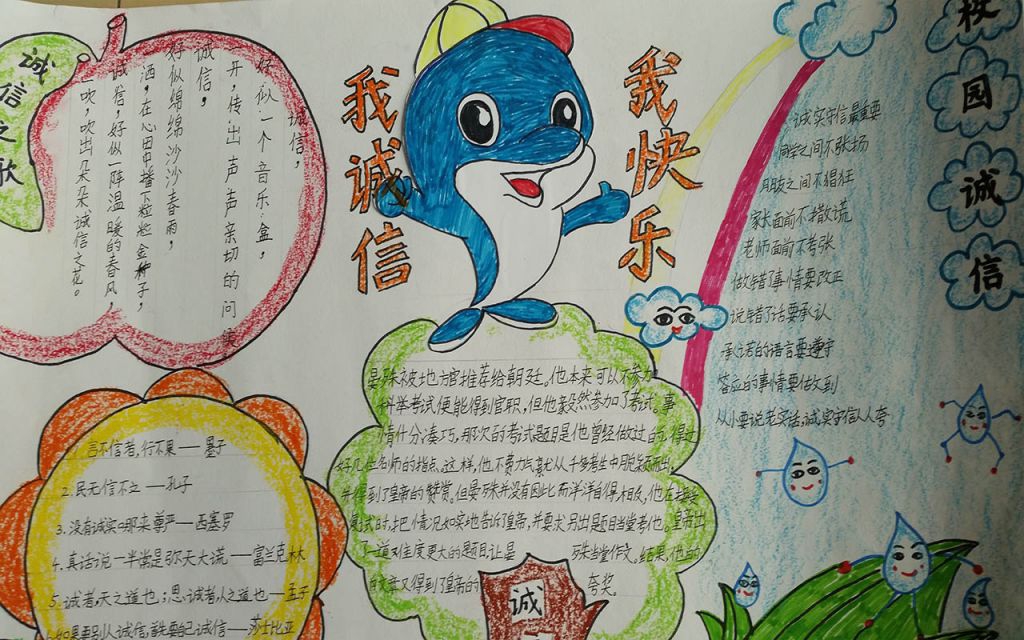 诚信之歌
诚信，
好似一个音乐盒，
开，传出声声亲切的问候
诚信，
好似绵绵沙沙春雨，
洒，在心田中播下粒粒金种子，
诚信，好似一阵温暖的春风，
吹，吹出朵朵诚信之花。
我诚信
我快乐
校园诚信
诚实守信最重要
同学之间不张扬
朋友之间不猖狂
家长面前不撒谎
老师面前不夸张
做错了事情要改正
说错了话要承认
承诺的语言要遵守
答应的事情要做到
从小要说老实话，诚实守信人人夸
言不信者，行不果——墨子
2.民无信不立——孔子
3.没有诚实哪来尊严——西塞罗
4.真话说一半常是弥天大谎——富兰克林
5.诚者，天之道也；思诚者，人之道也——孟子
如果要别人诚信，首先要自己诚信——莎士比亚
晏殊被地方官推荐给朝廷。他本来可以不参加
科举考试便能得到官职，但他毅然参加了考试。事
情十分凑巧，那次的考试题目是他曾经做过的，得过
好几位名师的指点。这样，他不费力气就从千多考生中脱颖而出，
并得到了皇帝的赞赏。但晏殊并没有因此而洋洋自得，相反，他在接受
复试时，把情况如实地告诉了皇帝，并要求另出题目，当堂考他。皇帝出
了一道难度更大的题目，让晏殊当堂作文。结果，他的
文章又得到了皇帝的夸奖。
诚